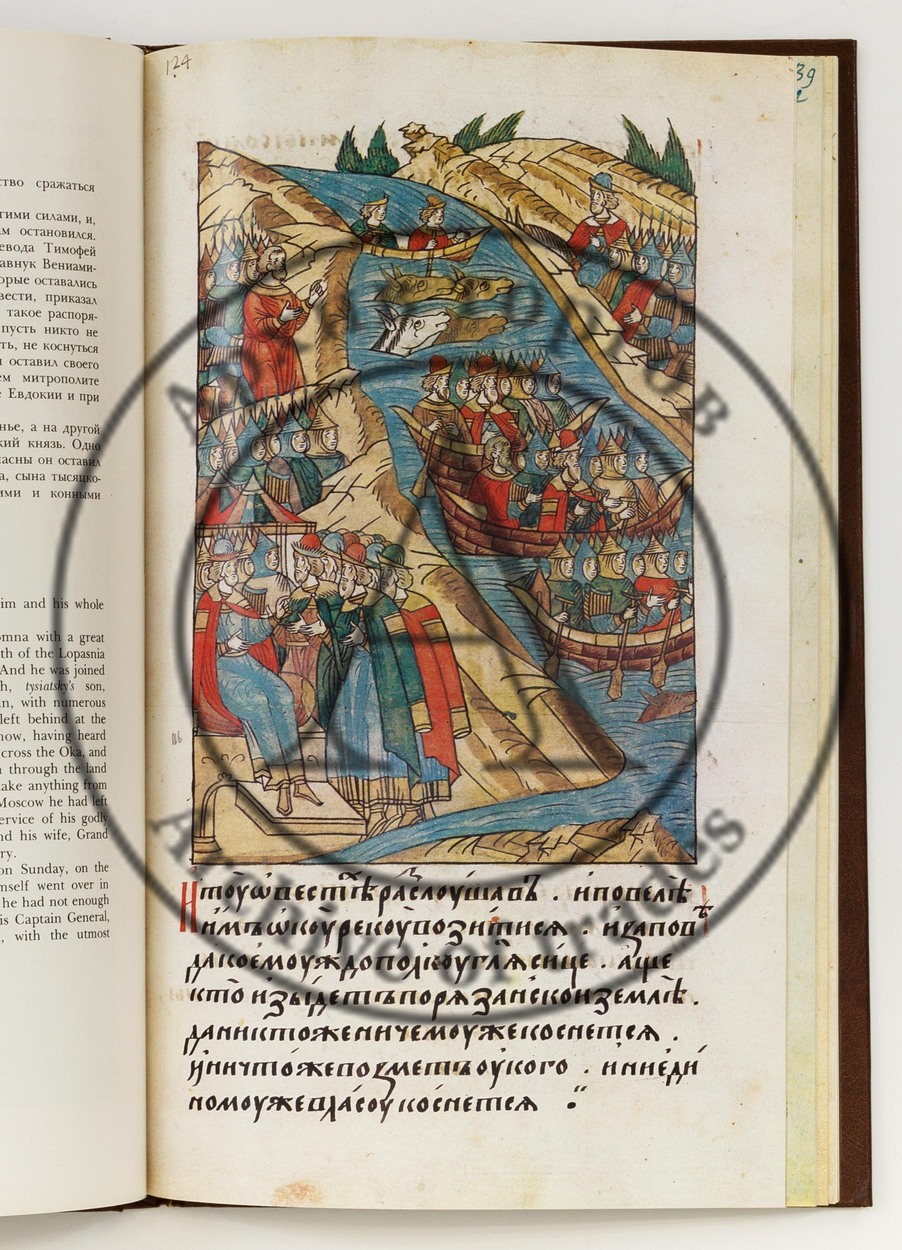 ство сражаться
гими силами, и,
ам остановился.
евода Тимофей
авнук Вениами-
орые оставались
вести, приказал
такое распоря-
пусть никто не
ть, не коснуться
оставил своего
ем митрополите
Евдокии и при
нье, а на другой
кий князь. Одно
асны он оставил
а, сына тысяцко-
ими и конными
im and his whole
omna with a great
th of the Lopasnia
And he was joined
h, tysiatsky's son,
n, with numerous
left behind at the
now, having heard
cross the Oka, and
through the land
ake anything from
Moscow he had left
ervice of his godly
nd his wife, Grand
ry.
on Sunday, on the
mself went over in
he had not enough
is Captain General,
, with the utmost
124
39
итоуѡвестїѣраслоушавъ . иповелѣ
имъѡкоурекоувозитися . изапов
дакоемоуждополкоуглясице . аще
кто изыдетъпорязанскоиземлѣ .
даниктоженичемоужекоснется .
иничтожевозметъоукого . иниеди
номоужевласоу коснется